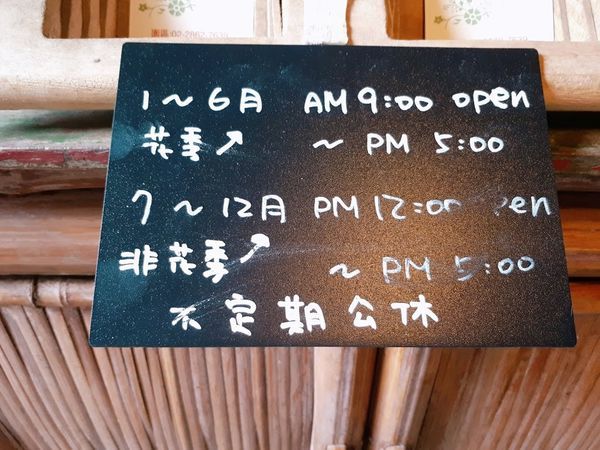 園區:02-2862-7639
1～6月 AM 9:00 open
花季↗ ～ PM 5:00
7～12月 PM 12:00 open
非花季↗ ～ PM 5:00
不定期公休